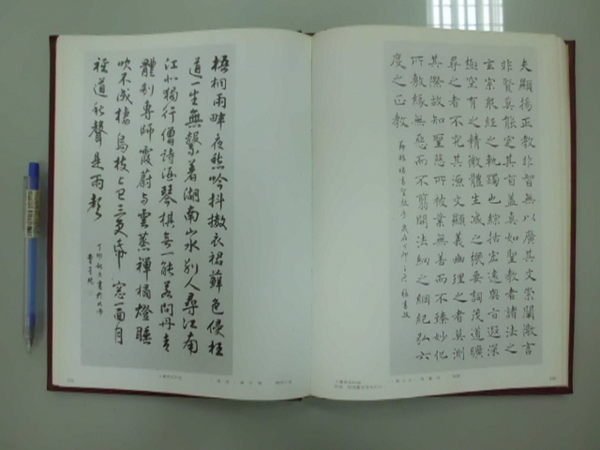 夫顯揚正教非智無以廣其文崇闡微言
非賢莫能定其旨蓋真如聖教者諸法之
玄宗眾經之軌躅也綜括宏遠奧旨遐深
極空有之精微體生滅之機要詞茂道曠
尋之者不究其源文顯義幽理之者莫測
其際故知聖慈所被業無善而不臻妙化
所敷緣無惡而不翦開法網之綱紀弘六
度之正教
梧桐雨畔夜愁吟抖擻衣裾蘚色侵枉
道一生無繫著湖南山水別人尋江南
江北獨行僧詩酒琴棋無一能若問丹青
體制專師霞蔚與雲蒸禪榻燈睡
吹不成棲鳥枝上已三更窗一面月
種道秋聲是雨聲